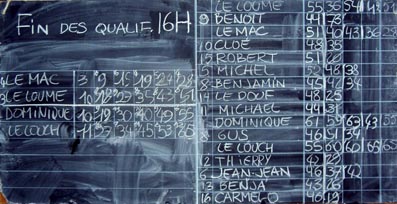 FIN DES QUALIF. 16H
LE MAC 3 9 15 19 24 28
LE LOUME 10 18 27 35 43 51
DOMINIQUE 10 19 30 40 49 55
LE LOUCH 11 23 34 45 53
LE LOUME 55 36 54
9 BENOIT 44 73
LE MAC 51 40 43 36
10 CLOÉ 48 35
15 ROBERT 51 62
5 MICHEL 52 48 38
8 BENJAMIN 44 34
14 LE DOUR 48 25
MICHAEL 44 31
DOMINIQUE 61 59 63 43
GUS 46 41 34
LE LOUCH 55 60 66 65 65
12 THIERRY 42 22
6 JEAN-JEAN 46 37 42
13 BENJA 43 26
16 CARMELO 40 19